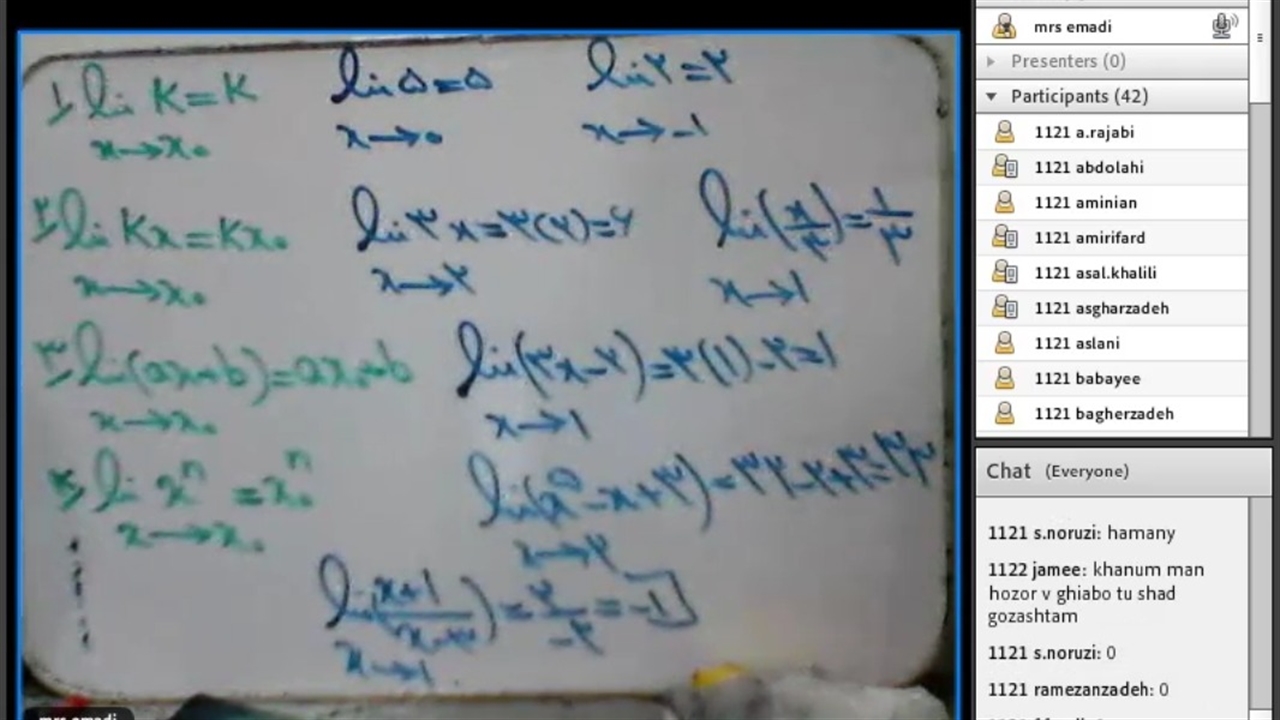 ۱ lim K = K    lim ۵ = ۵    lim ۲ = ۲
x→x₀    x→۰    x→-۱
۲ lim Kx = Kx₀    lim ۳x = ۳(۲) = ۶    lim (x/۳) = ۱/۳
x→x₀    x→۲    x→۱
۳ lim (ax+b) = ax₀+b    lim (۳x-۲) = ۳(۱)-۲ = ۱
x→x₀    x→۱
۴ lim xⁿ = x₀ⁿ    lim (x^۵ - x + ۳) = ۳۲ - ۲ + ۳ = ۳۳
x→x₀    x→۲
lim (x+۱ / x-۳) = ۲/-۲ = -۱
x→۱
mrs emadi
mrs emadi
Presenters (0)
Participants (42)
1121 a.rajabi
1121 abdolahi
1121 aminian
1121 amirifard
1121 asal.khalili
1121 asgharzadeh
1121 aslani
1121 babayee
1121 bagherzadeh
Chat (Everyone)
1121 s.noruzi: hamany
1122 jamee: khanum man
hozor v ghiabo tu shad
gozashtam
1121 s.noruzi: 0
1121 ramezanzadeh: 0